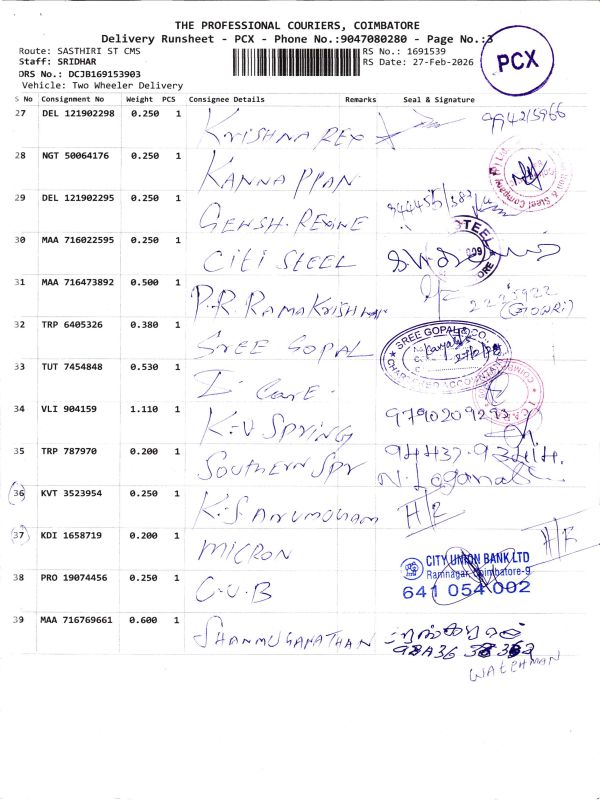 THE PROFESSIONAL COURIERS, COIMBATORE
Delivery Runsheet - PCX - Phone No.:9047080280 - Page No.:3
Route: SASTHIRI ST CMS
RS No.: 1691539
Staff: SRIDHAR
RS Date: 27-Feb-2026
PCX
DRS No.: DCJB169153903
Vehicle: Two Wheeler Delivery
S No Consignment No Weight PCS Consignee Details Remarks Seal & Signature
27 DEL 121902298 0.250 1 KRISHNA REX
28 NGT 50064176 0.250 1 KANNAPPAN
29 DEL 121902295 0.250 1
30 MAA 716022595 0.250 1 CITI STEEL
31 MAA 716473892 0.500 1 P.R. RAMAKRISHNAN 2225922
(GOWRI)
32 TRP 6405326 0.380 1 SREE GOPAL SREE GOPAL & CO. CHARTERED ACCOUNTANTS
33 TUT 7454848 0.530 1 I Care.
34 VLI 904159 1.110 1 K.V SPRING 9790209293
35 TRP 787970 0.200 1 SOUTHERN SPR
36 KVT 3523954 0.250 1 K.S. ARUMUGHAM H/2
37 KDI 1658719 0.200 1 MICRON H/F
38 PRO 19074456 0.250 1 C.U.B CITY UNION BANK LTD
Ramnagar, Coimbatore-9
641 054 002
39 MAA 716769661 0.600 1 SHANMUGANATHAN
WATCHMAN